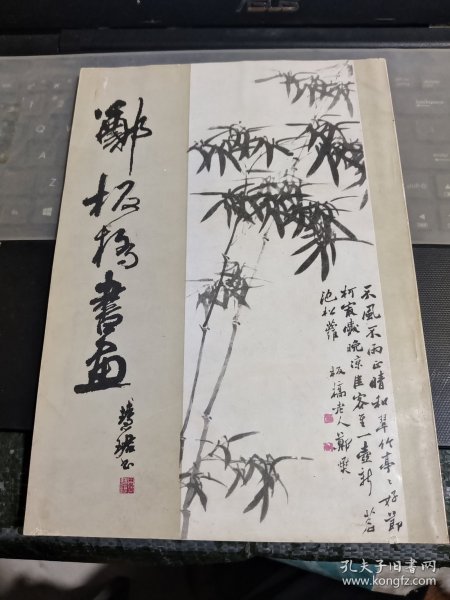 鄭板橋書画
不風不雨正晴和翠竹亭〻好節
柯最𢡖晚涼佳客至一壺新茗
泡松蘿
板橋老人鄭燮
孔夫子旧书网
www.kongfz.com
ASUS